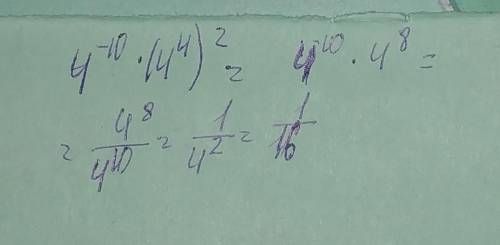 4⁻¹⁰ · (4⁴)² = 4⁻¹⁰ · 4⁸ =
= 4⁸/4¹⁰ = 1/4² = 1/16